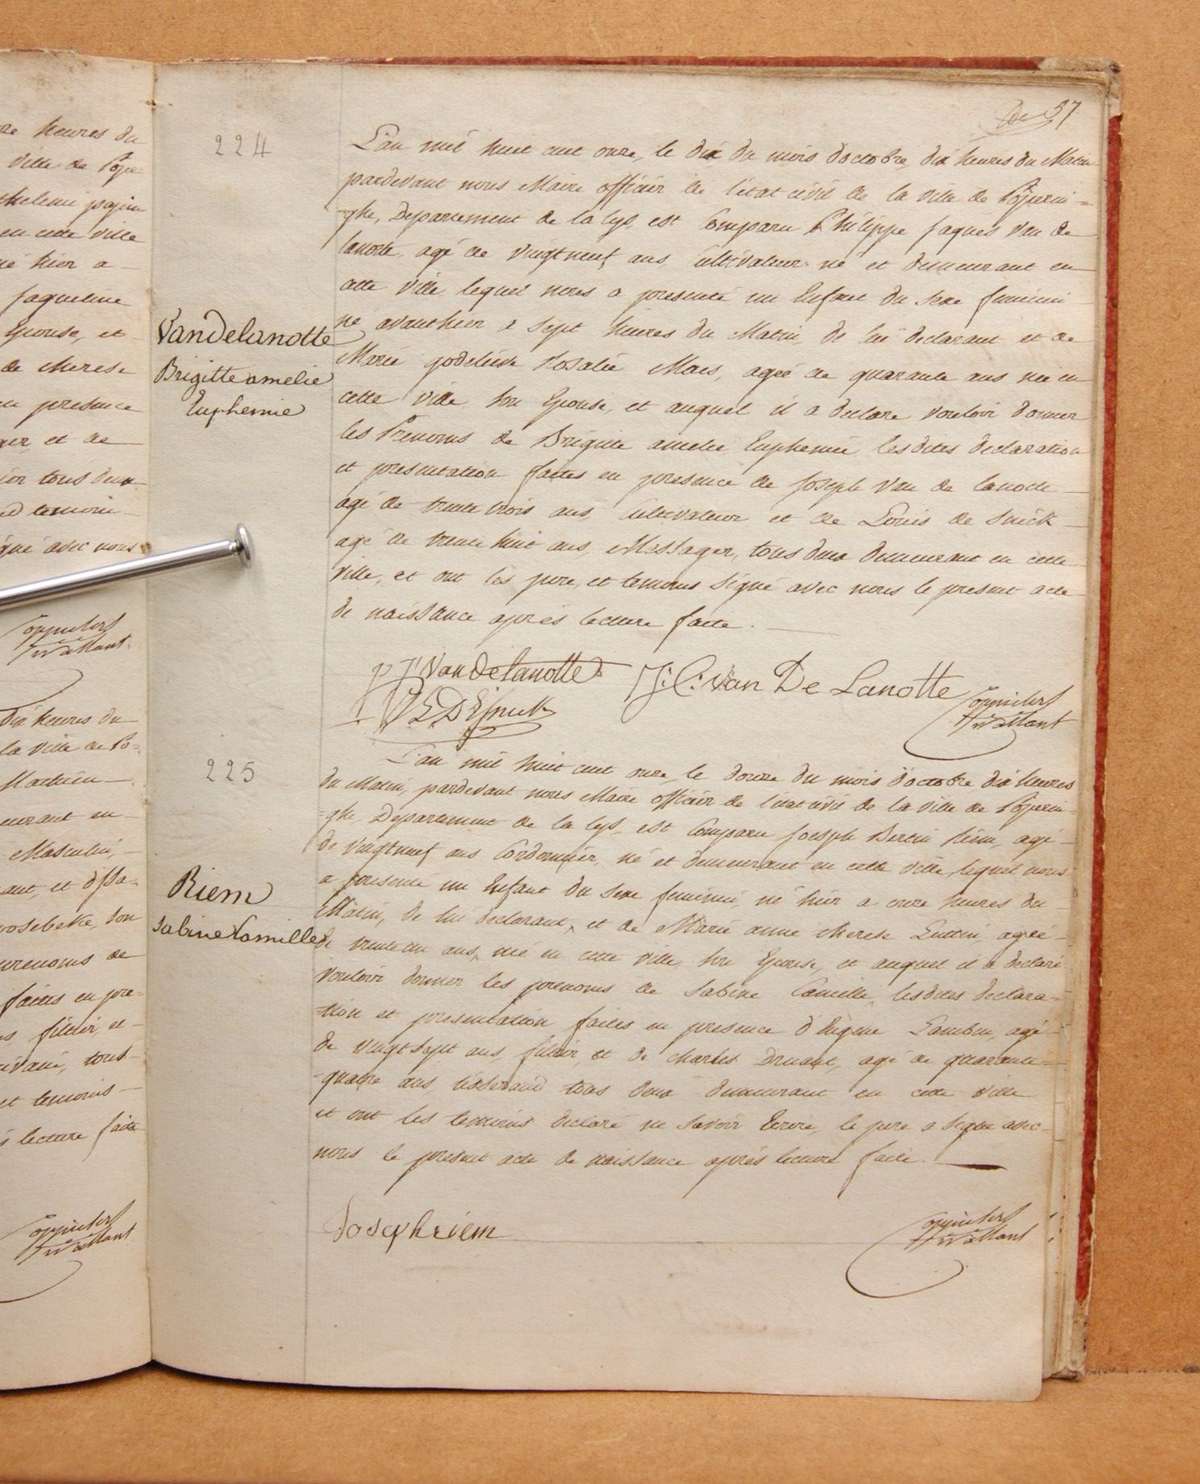 re heures du
ville de Pope
thelemi
en cette ville
né hier a
Jaqueline
Epouse, et
de therese
en presence
et de
ion tous deux
temoins
signé avec nous
Dix heures du
la ville de Po-
Mathieu
demeurant en
Masculin,
rosebeke, son
prenoms de
faites en pre-
filtier, et
tous
et temoins
lecture faite
37
224
L'an mil huit cent onze, le dix du mois d'octobre, dix heures du Matin
pardevant nous Maire officier de l'etat civil de la ville de Poperin=
=ghe, Departement de la lys, est Comparu Philippe Jaques Van de
lanotte, agé de vingt neuf ans cultivateur né et demeurant en
cette ville, lequel nous a presenté un Enfant du sexe feminin
né avanthier a sept heures du Matin, de lui declarant et de
Marie godelieve Rosalie Maes, agée de quarante ans née en
cette ville, son Epouse, et auquel il a declaré vouloir donner
les Prenoms de Brigitte amelie Euphemie, lesdites declaration
et presentation faites en presence de Joseph Van de lanotte
agé de trente trois ans, cultivateur et de Louis de Snick
agé de trente huit ans, Messager, tous deux demeurant en cette
ville, et ont les pere, et temoins signé avec nous le present acte
de naissance après lecture faite.
VanDelanotte
Brigitte amelie
Euphemie
p J VanDelanotte
J: C: Van De Lanotte
225
L'an mil huit cent onze, le douze du mois d'octobre dix heures
du Matin, pardevant nous Maire officier de l'etat civil de la ville de Poperin
=ghe Departement de la lys, est Comparu Joseph Bertin Riem, agé
de vingt neuf ans Cordonnier, né et demeurant en cette ville, lequel nous
a presenté un Enfant du sexe feminin, né hier a onze heures du
Matin, de lui declarant, et de Marie anne therese, agée
de trente un ans, née en cette ville, son Epouse, et auquel il a declaré
vouloir donner les prenoms de Sabine Camille, lesdites declara-
=tion et presentation faites en presence d'Eugene, agé
de vingt sept ans, filtier, et de Charles Druant, agé de quarante
=quatre ans tisserand tous deux demeurant en cette ville
et ont les temoins declaré ne savoir Ecrire, le pere a signé avec
nous le present acte de naissance après lecture faite.
Riem
Sabine Camille
Joseph riem